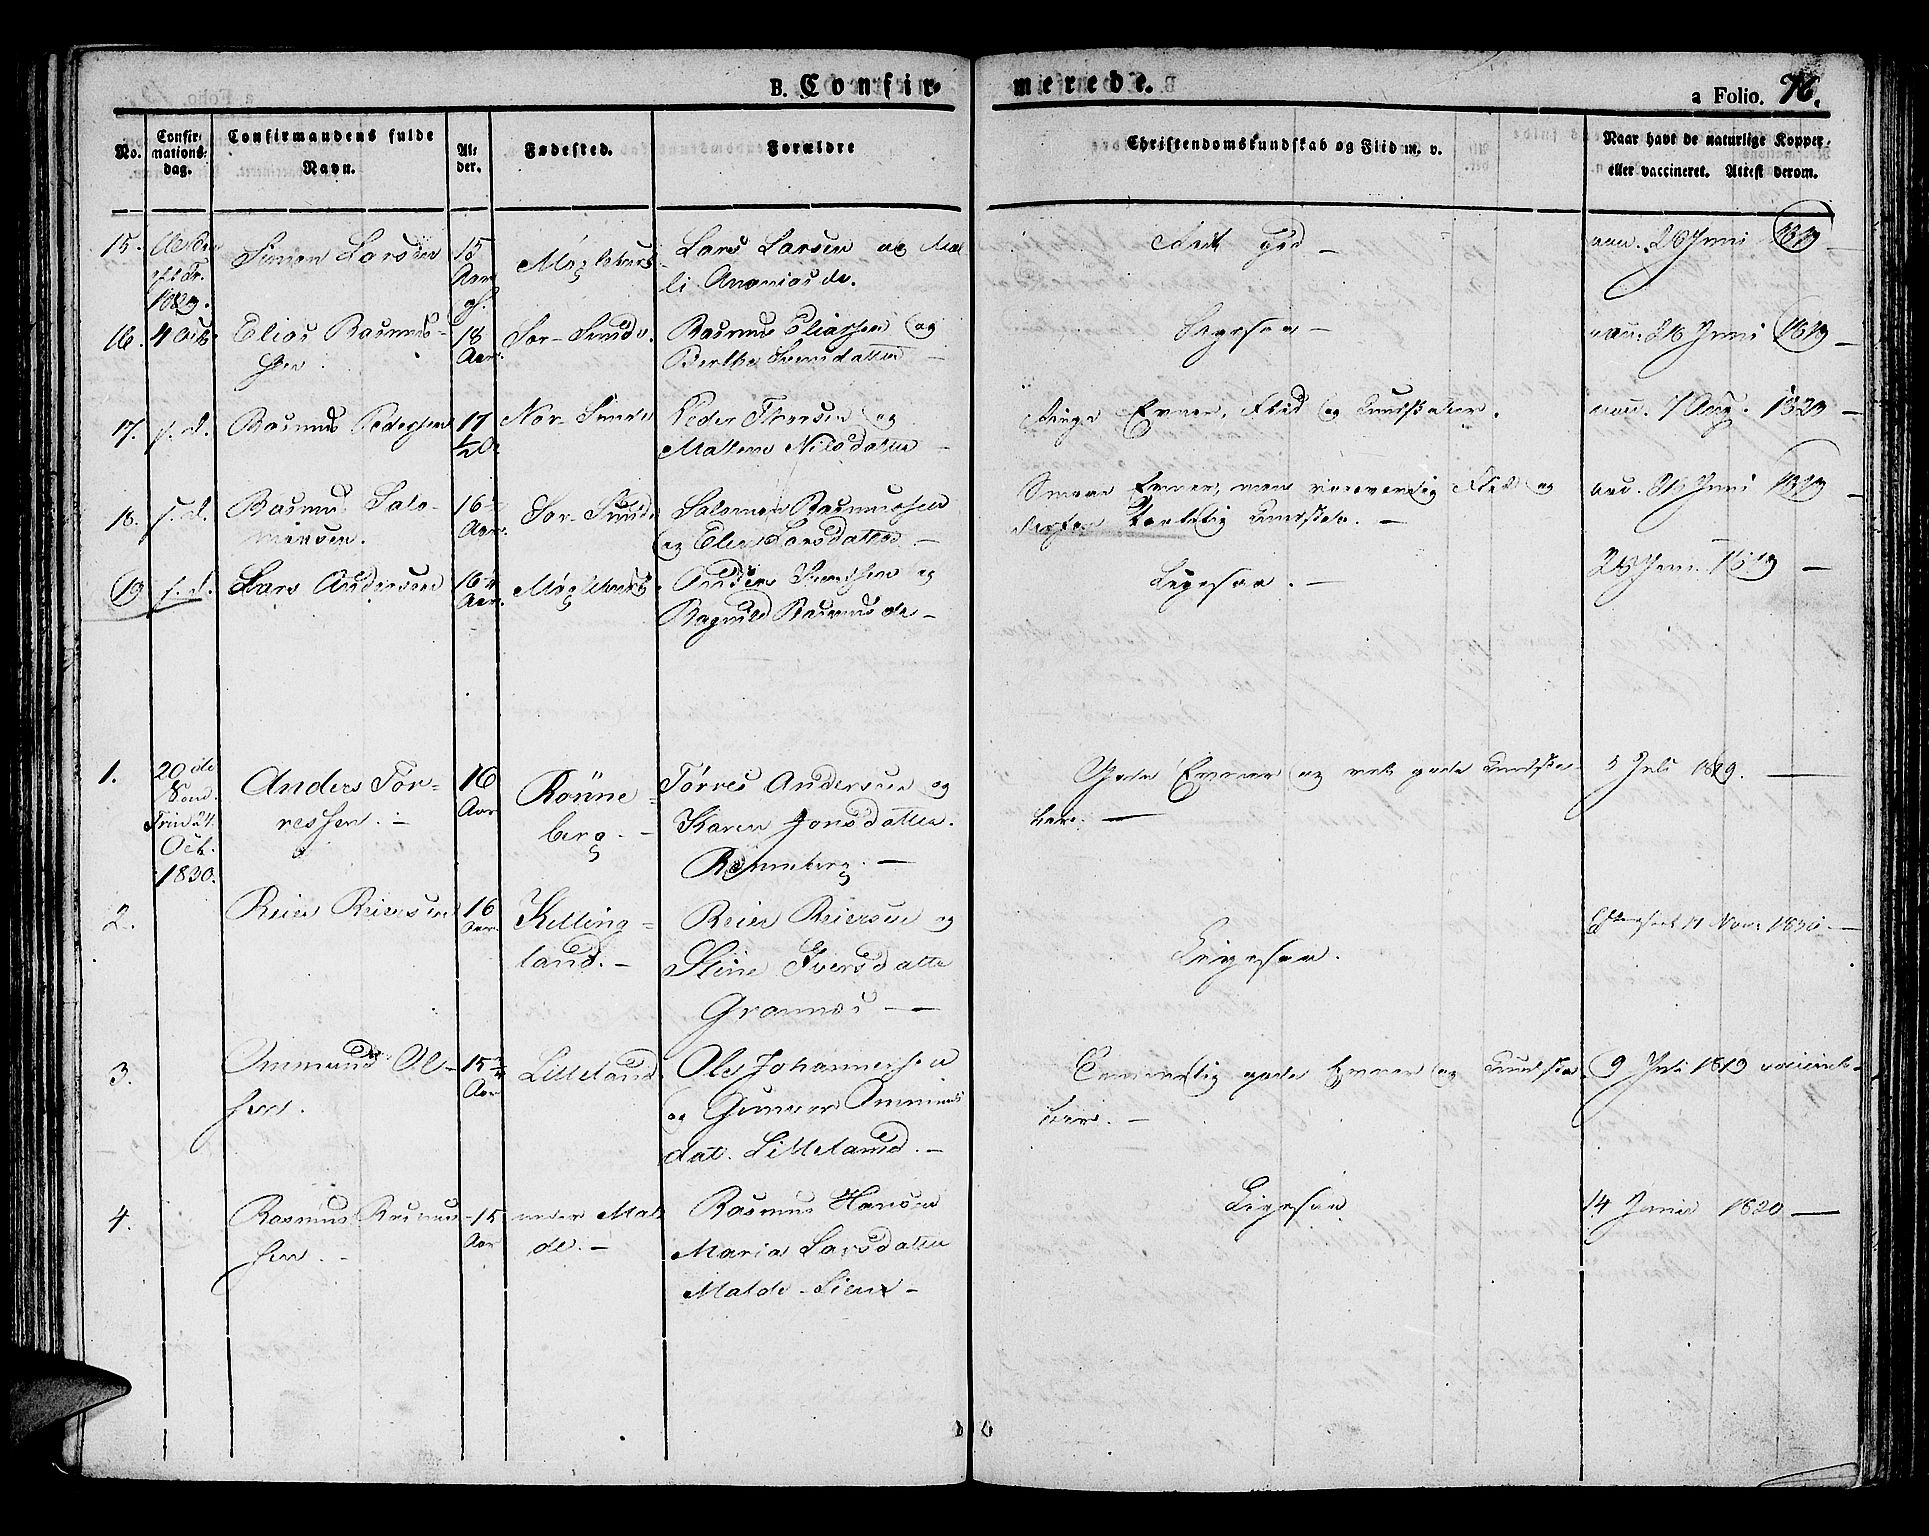 B. Confir-
merede.
a Folio. 76.
No.
Confir-
mations-
dag.
Confirmandens fulde
Navn.
Al-
der.
Fødested.
Forældre
Christendomskundskab og Flid m. v.
Naar havt de naturlige Kopper
eller vaccineret. Attest derom.
15.
1829.
Simon Larsen
15
Aar
Møglebust
Lars Larsen og Mal-
li Ananiasde.
26 Juni
16.
4 Oct.
Elias Rasmus-
sen
18
Aar.
Sør-Sunde.
Rasmus Eliassen og
Berthe Svensdatter
Ligesaa
26 Juni 1819
17.
s. d.
Rasmus Pedersen
17
1/2
Nor-Sunde
Peder Thorsen og
Malene Nilsdatter
Ringe Evner, Flid og Kundskaber.
7 Aug. 1829
18.
s. d.
Rasmus Salo-
monsen.
16
Aar.
Sør-Sunde
Salomon Rasmussen
og Elen Larsdatter
Smaae Evner, men Flid og
Kundskab.
26 Juni
19
s. d.
Lars Andersen
16
Aar.
Møglebust
Anders Svendsen og
Ragnild Rasmusde
Ligesaa.
26 Juni 1819
1.
20de
Sønd.
Trin 24.
Oct.
1830.
Anders Tør-
ressen.
16
Aar
Rönne-
berg.
Törres Andersen og
Karen Jonsdatter.
Rønneberg.
Gode Evner og ret gode Kundska-
ber.
5 Juli 1819.
2.
Reier Reiersen
16
Aar
Kelling-
land.
Reier Reiersen og
Stine Iversdatte
Grannæs
Ligesaa.
17 Nov. 1830.
3.
Ommund Ol-
sen.
15 3/4
Aar
Lilleland
Ole Johannessen
og Gunvor Ommunds
dat. Lilleland.
gode Evner og Kundska-
ber.
9 Juli 1819
4.
Rasmus Rasmus-
sen.
15
Aar
neder Mal-
de.
Rasmus Hansen
Maria Larsdatter
Malde-Lien
Ligesaa
14 Junii 1820